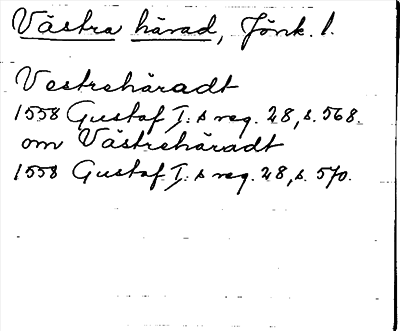 Västra härad, Jönk. l.
Vestrehäradt
1558 Gustaf I:s reg. 28, s. 568.
om Västrehäradt
1558 Gustaf I:s reg. 28, s. 570.